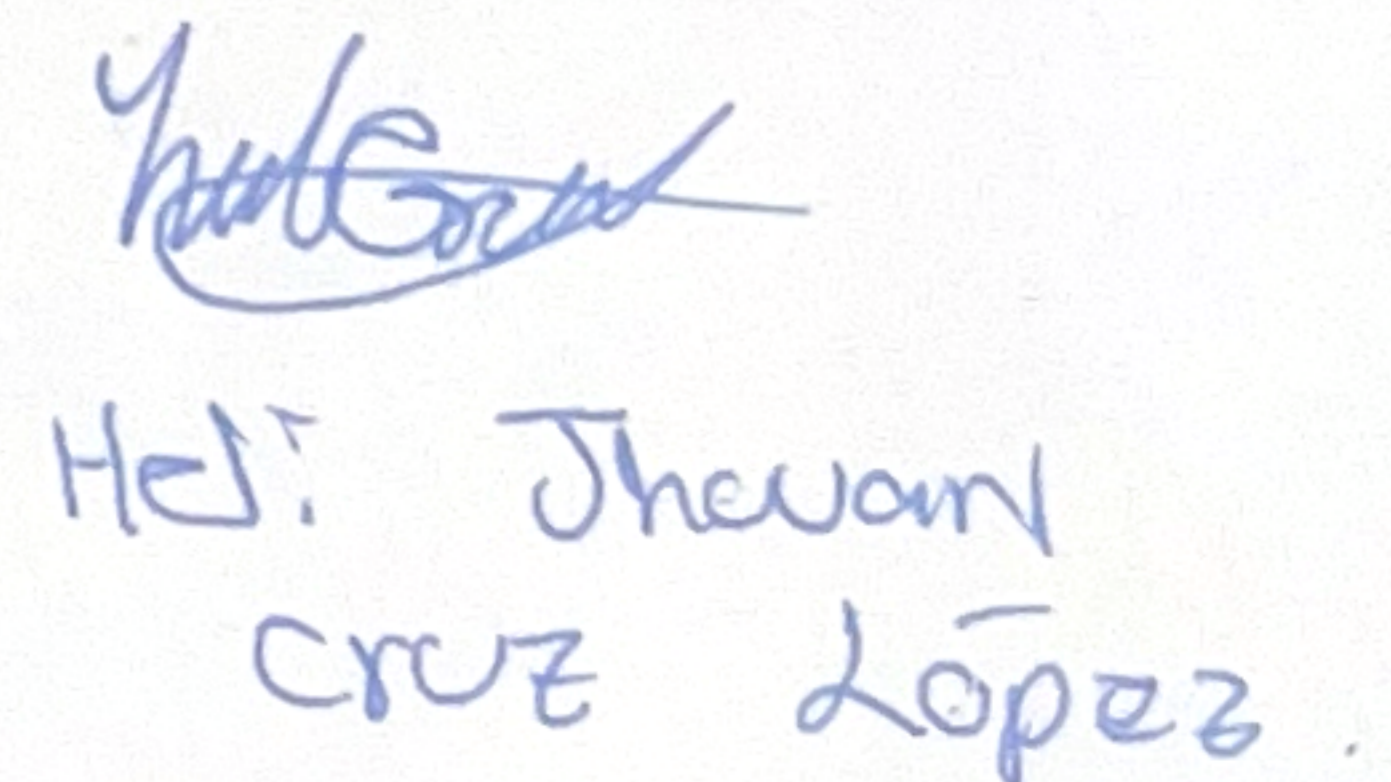 Heli Jhovan
Cruz López.